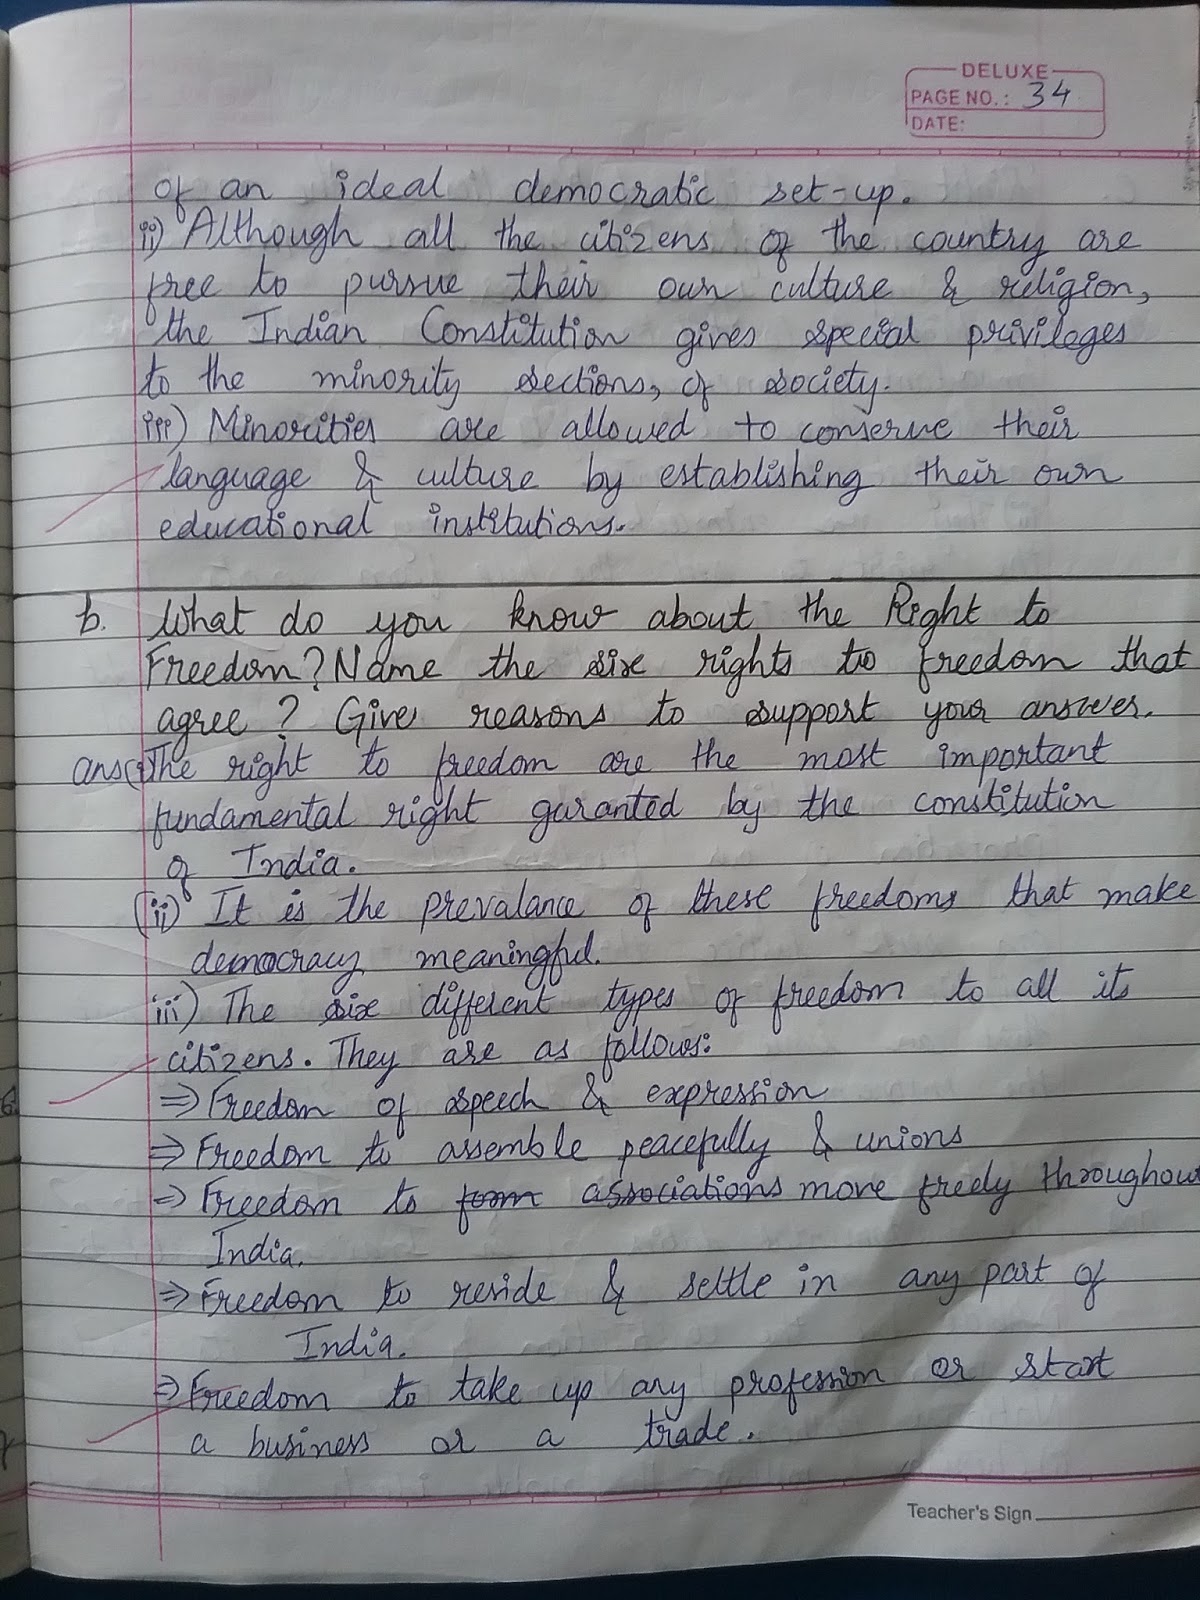 DELUXE
PAGE NO.: 34
DATE:
of an ideal democratic set-up.
ii) Although all the citizens of the country are
free to pursue their own culture & religion,
the Indian Constitution gives special privileges
to the minority sections, of society.
iii) Minorities are allowed to conserve their
language & culture by establishing their own
educational institutions.
b. What do you know about the Right to
Freedom? Name the six rights to freedom that
agree? Give reasons to support your answer.
ans(i) The right to freedom are the most important
fundamental right guranted by the constitution
of India.
(ii) It is the prevalance of these freedoms that make
democracy meaningful.
iii) The six different types of freedom to all its
citizens. They are as follows:
⇒ Freedom of speech & expression
⇒ Freedom to assemble peacefully & unions
⇒ Freedom to form associations move freely throughout
India.
⇒ Freedom to reside & settle in any part of
India.
⇒ Freedom to take up any profession or start
a business or a trade.
Teacher's Sign